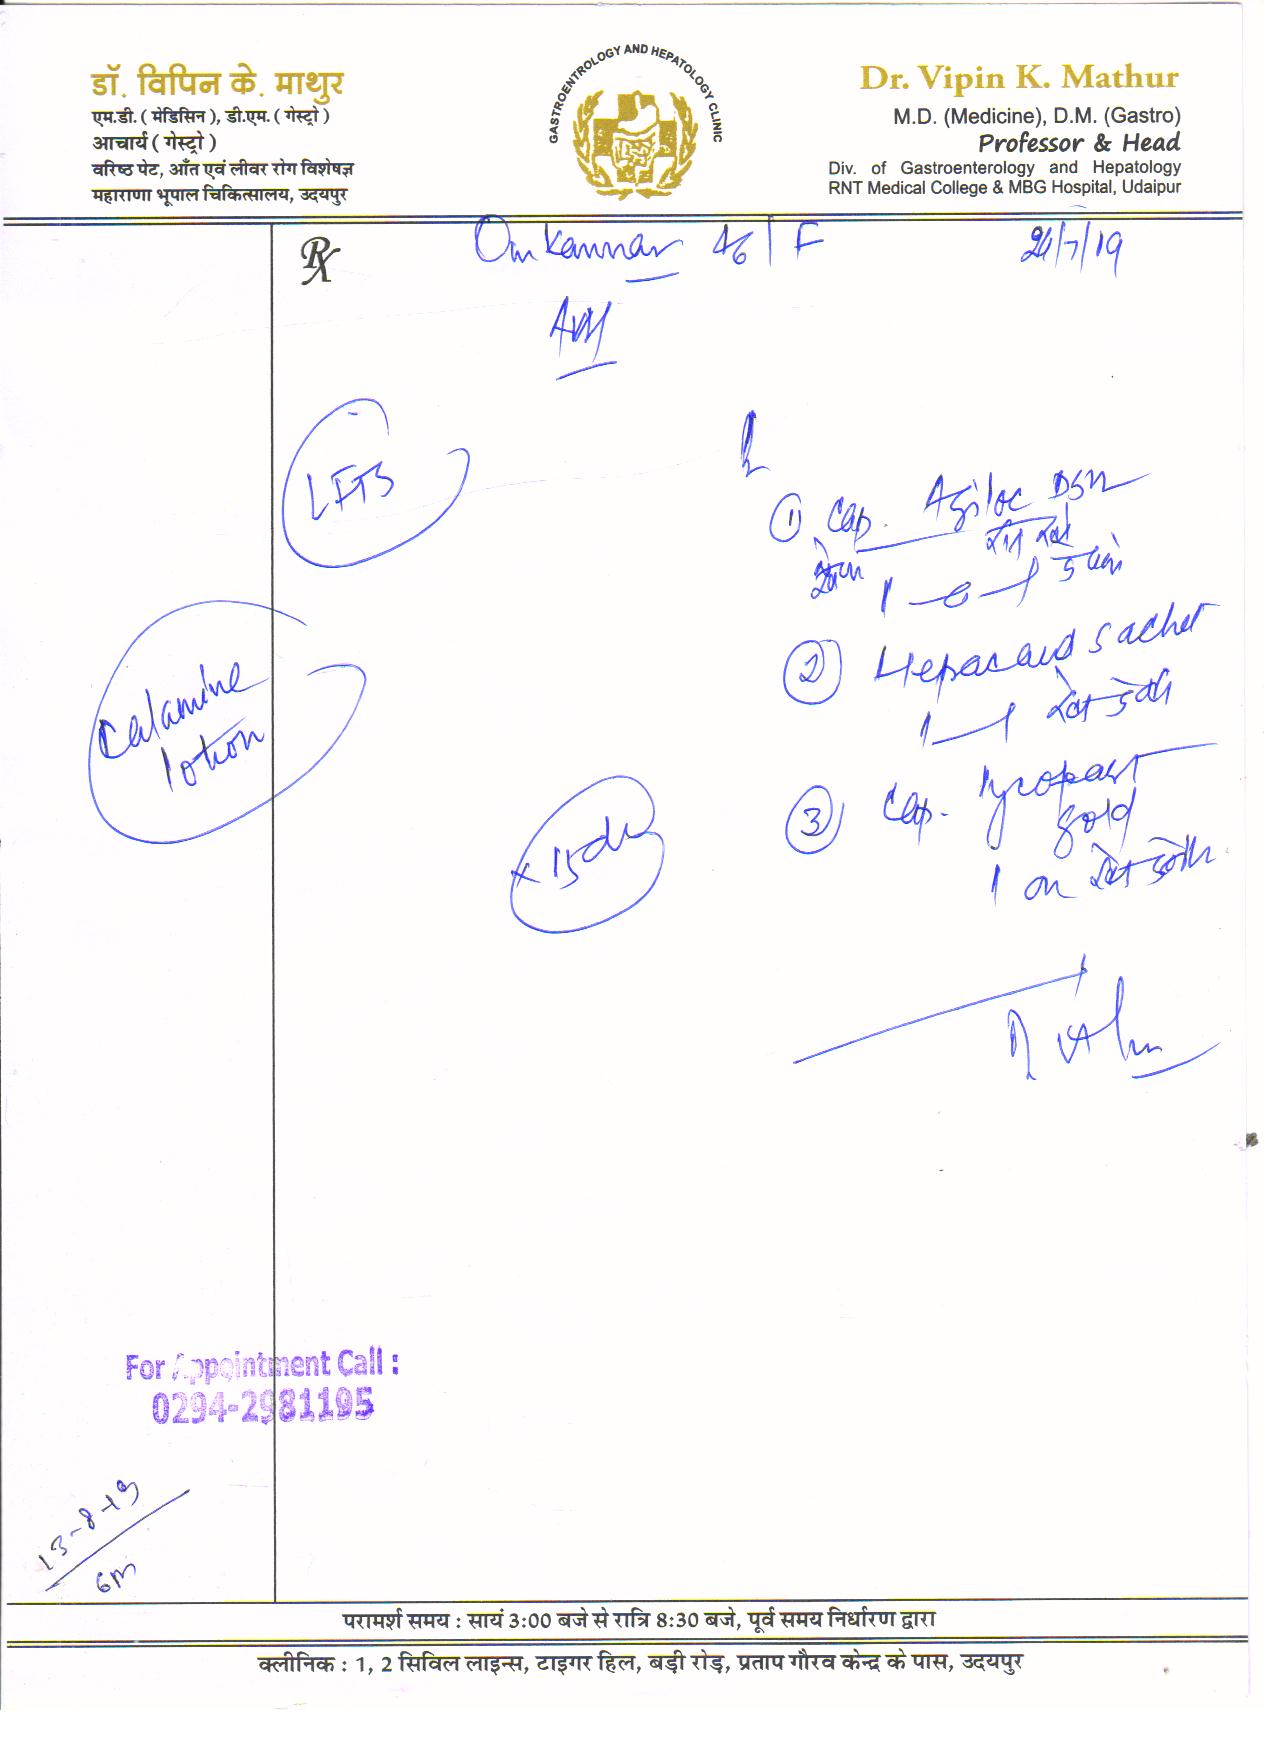 डॉ. विपिन के. माथुर
एम.डी. ( मेडिसिन ), डी.एम. ( गेस्ट्रो )
आचार्य ( गेस्ट्रो )
वरिष्ठ पेट, आँत एवं लीवर रोग विशेषज्ञ
महाराणा भूपाल चिकित्सालय, उदयपुर
GASTROENTROLOGY AND HEPATOLOGY CLINIC
Dr. Vipin K. Mathur
M.D. (Medicine), D.M. (Gastro)
Professor & Head
Div. of Gastroenterology and Hepatology
RNT Medical College & MBG Hospital, Udaipur
Rx
46 / F
/7/19
LFTS
① Cap. Aziloc DSR
1 - 0 - 1
② Hepacaud sachet
1 - 1
③ Cap. Lycopart
gold
1
Calamine
lotion
x 15
For Appointment Call :
0294-2981195
13-8-19
परामर्श समय : सायं 3:00 बजे से रात्रि 8:30 बजे, पूर्व समय निर्धारण द्वारा
क्लीनिक : 1, 2 सिविल लाइन्स, टाइगर हिल, बड़ी रोड़, प्रताप गौरव केन्द्र के पास, उदयपुर